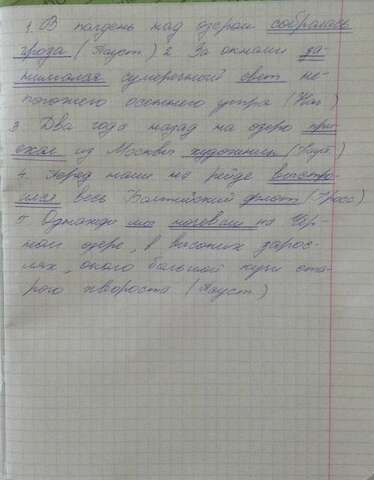 1. В полдень над озером собралась
гроза (Пауст) 2 За окнами за-
нимался сумеречный свет не-
погожего осеннего утра (Ник)
3. Два года назад на озеро при-
ехал из Москвы художник (Пауст)
4. Перед нами на рейде выстро-
ился весь Балтийский флот (Уусс)
5 Однажды мы ночевали на Чёр-
ном озере, в высоких зарос-
лях, около большой кучи ста-
рого хвороста (Пауст)